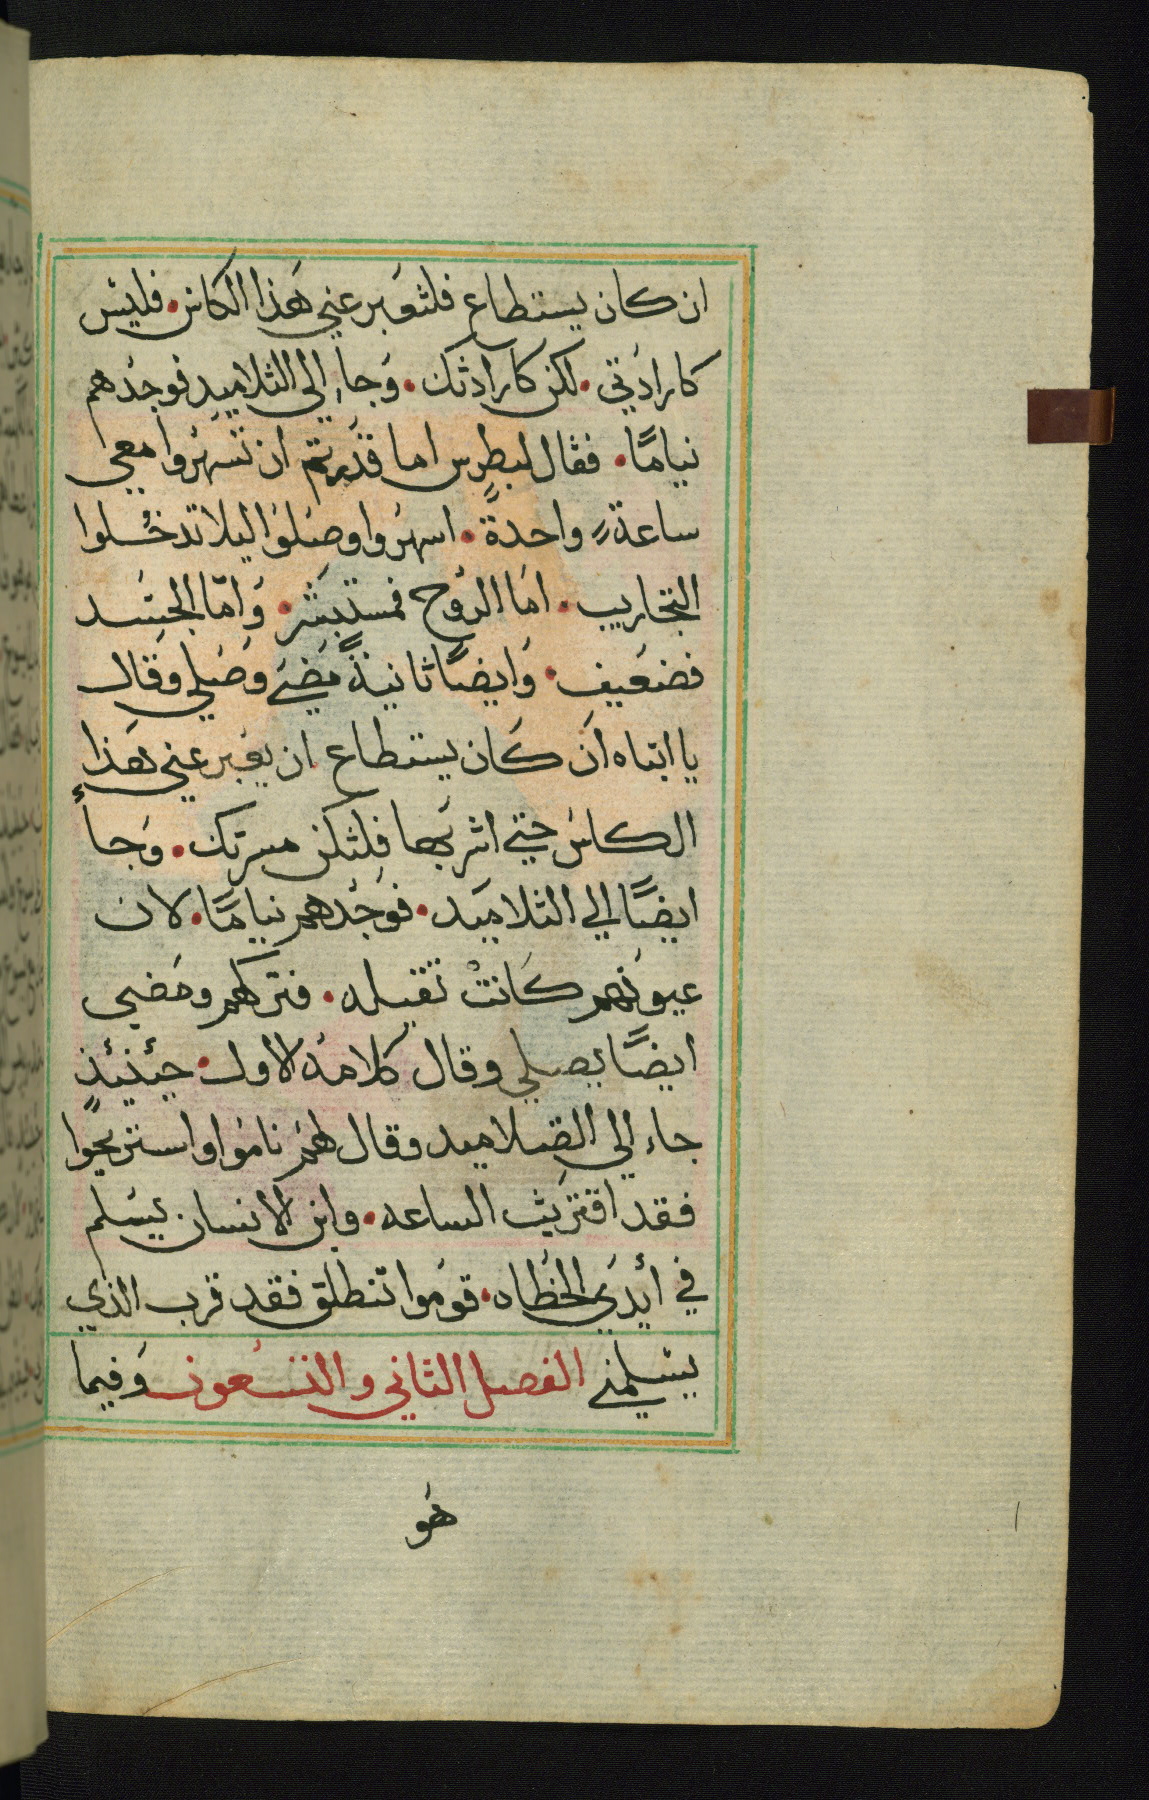 ان كان يستطاع فلتعَبر عني هَذا الكاس • فليسَ
كارادَتي • لكن كارادتك • وَجاء إلى التلاميد فوجدهم
نيامًا • فقال لبطرس اما قدَرتم ان تسهَروا معي
ساعةً واحدةً • اسهرُوا وصَلوُا ليلا تدخُلوا
التجاريب • امَا الروُح فمستبشر • وَامّا الجسَد
فضعَيف • وَايضًا ثانيةً مَضىَ وصَلي وقال
يا ابتاه اَن كَان يستطاع ان يعَبر عني هَذا
الكاسُ حتي اشربَها فلتكن مسرتك • وَجاءَ
ايضًا الي التلاميَد • فوَجَدهم نيامًا • لان
عيونَهم كَانتْ ثقيله • فتركهم ومَضي
ايضًا يصلي وقال كلامَهُ الاول • حيَنئذٍ
جاء الي التلاميد وقال لهمُ نامُوا واستريحُوا
فقد اقتربَت الساعه • وابن الانسان يسَلم
في أيدَي الخطُاه • قومُوا ننطلق فقد قرب الذي
يسَلمني الفصل الثاني والتسَعون وَفيما
هَو